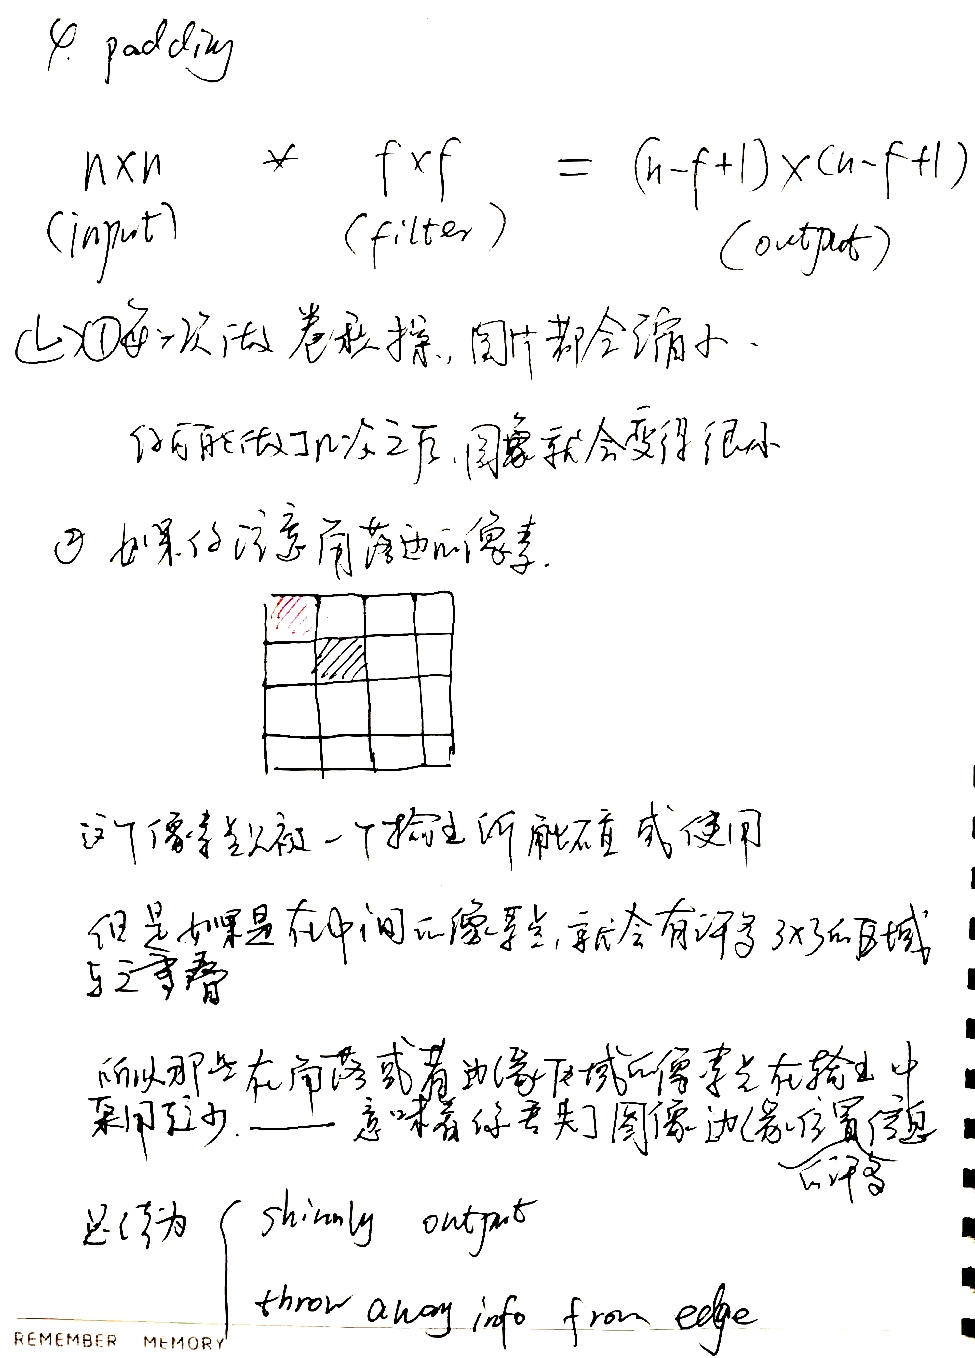 4. padding
n×n * f×f = (n-f+1)×(n-f+1)
(input) (filter) (output)
①每次做卷积操, 图片都会缩小.
你可能做了几次之后, 图象就会变得很小
② 如果你注意角落边的像素.
这个像素点只被一个输出所触碰或使用
但是如果是在中间的像素点, 就会有许多3×3的区域
与之重叠
所以那些在角落或者边缘区域的像素点在输出中
采用较少. —— 意味着你丢失了图像边缘位置信息
的许多
总结为 output
throw away info from edge
REMEMBER MEMORY